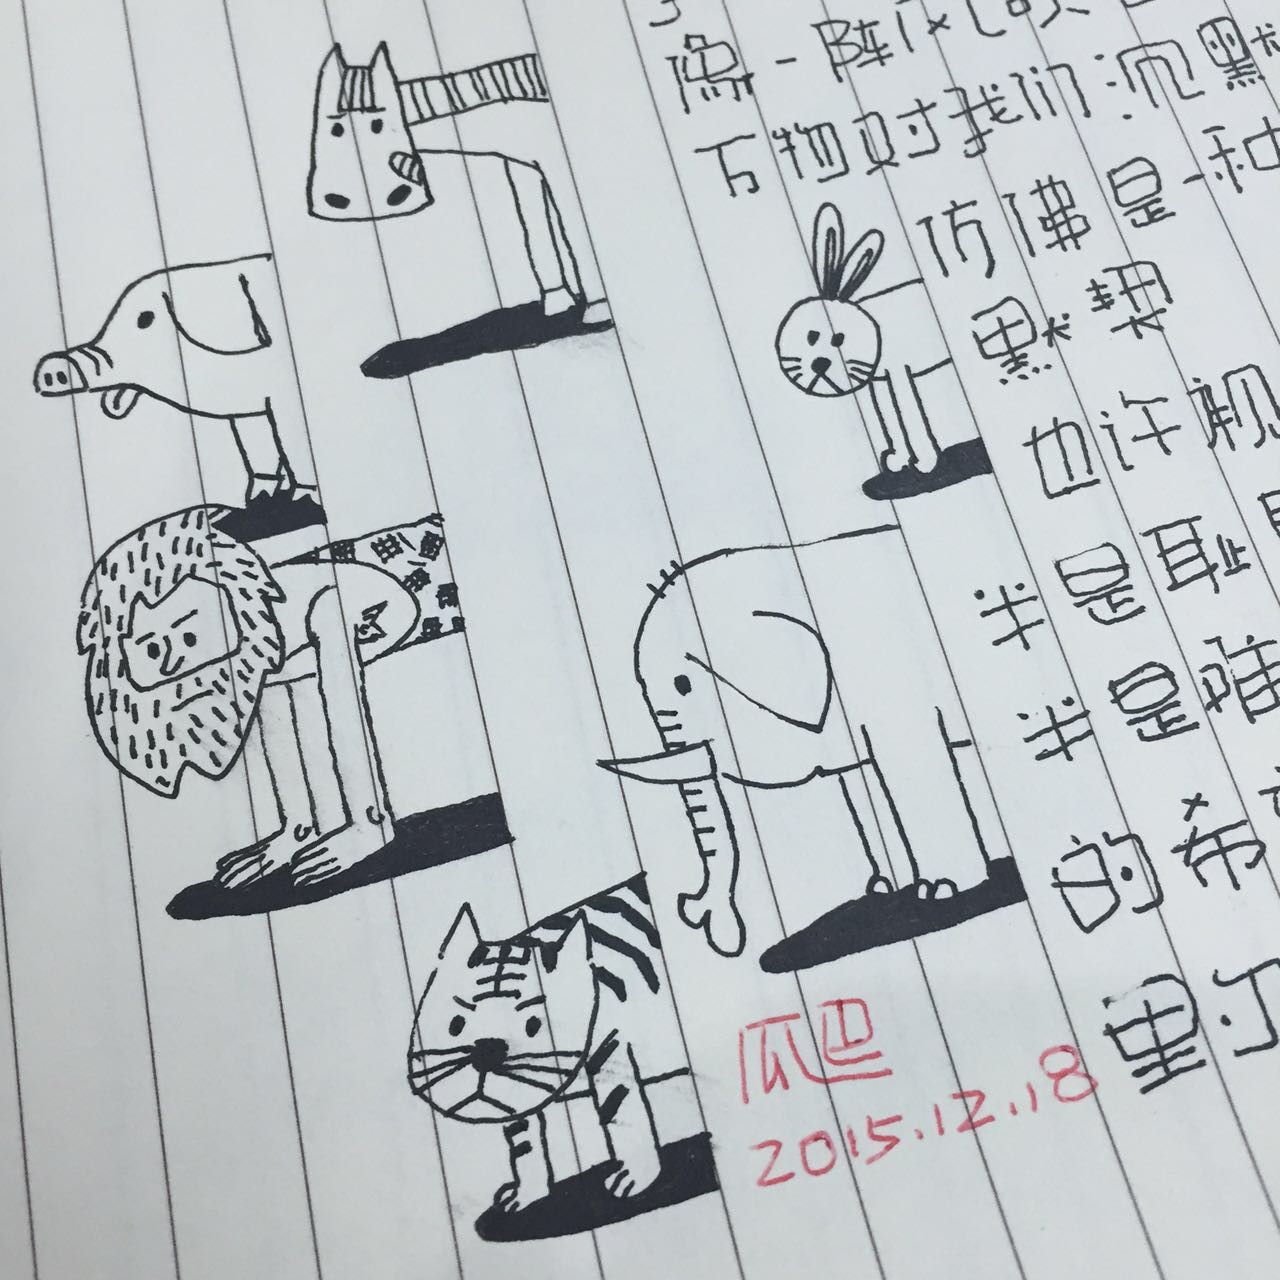 像一阵
万物对我们沉默
仿佛是一种
默契
也许视
半是耻
半是
的希
里
瓜迅
2015.12.18